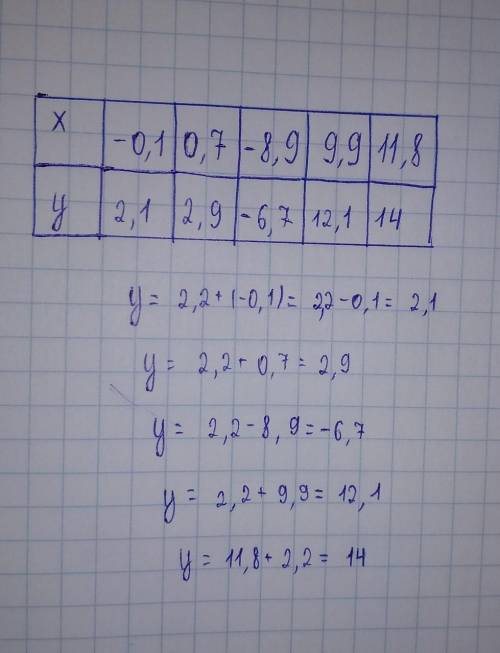 x -0,1 0,7 -8,9 9,9 11,8
y 2,1 2,9 -6,7 12,1 14
y = 2,2 + (-0,1) = 2,2 - 0,1 = 2,1
y = 2,2 + 0,7 = 2,9
y = 2,2 - 8,9 = -6,7
y = 2,2 + 9,9 = 12,1
y = 11,8 + 2,2 = 14